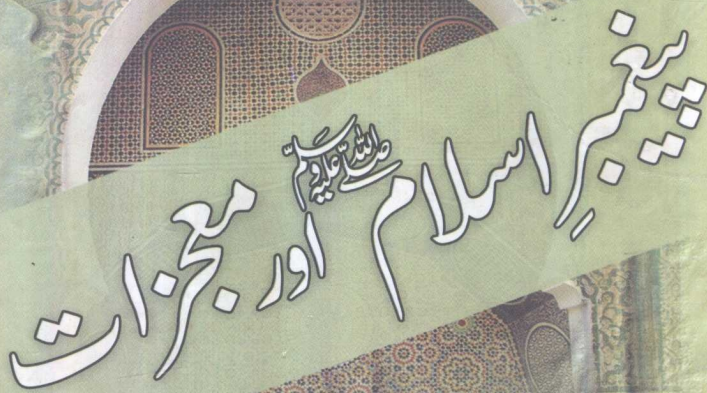 پیغمبرِ اسلام صلی اللہ علیہ وسلم اور معجزات